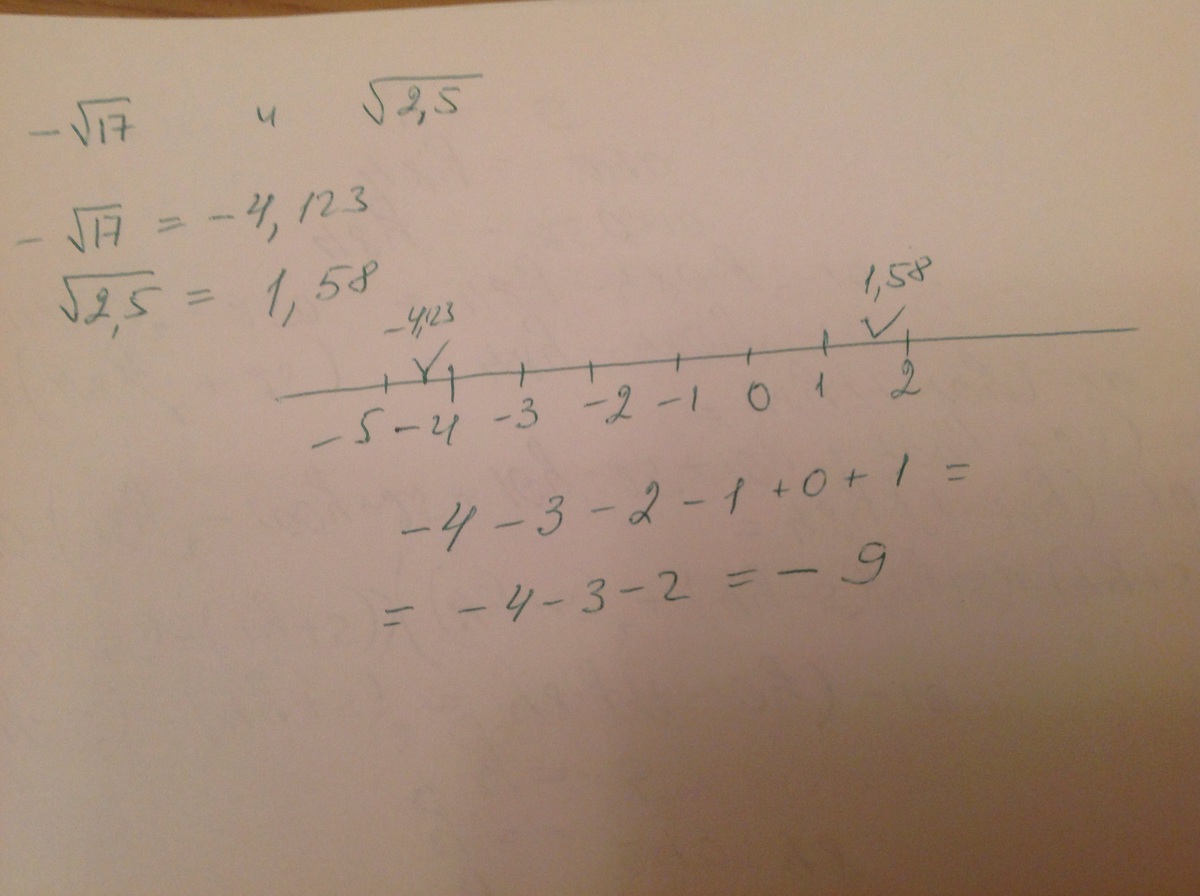 -√17 и √2,5
-√17 = -4,123
√2,5 = 1,58
-4,123 1,58
-5 -4 -3 -2 -1 0 1 2
-4-3-2-1+0+1=
= -4-3-2 = -9